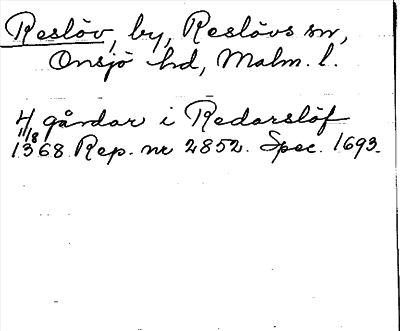 Reslöv, by, Reslövs sn,
Onsjö hd, Malm. l.
4 gårdar i Redarslöf
11/8 1368. Rep. nr 2852. Spec. 1693.